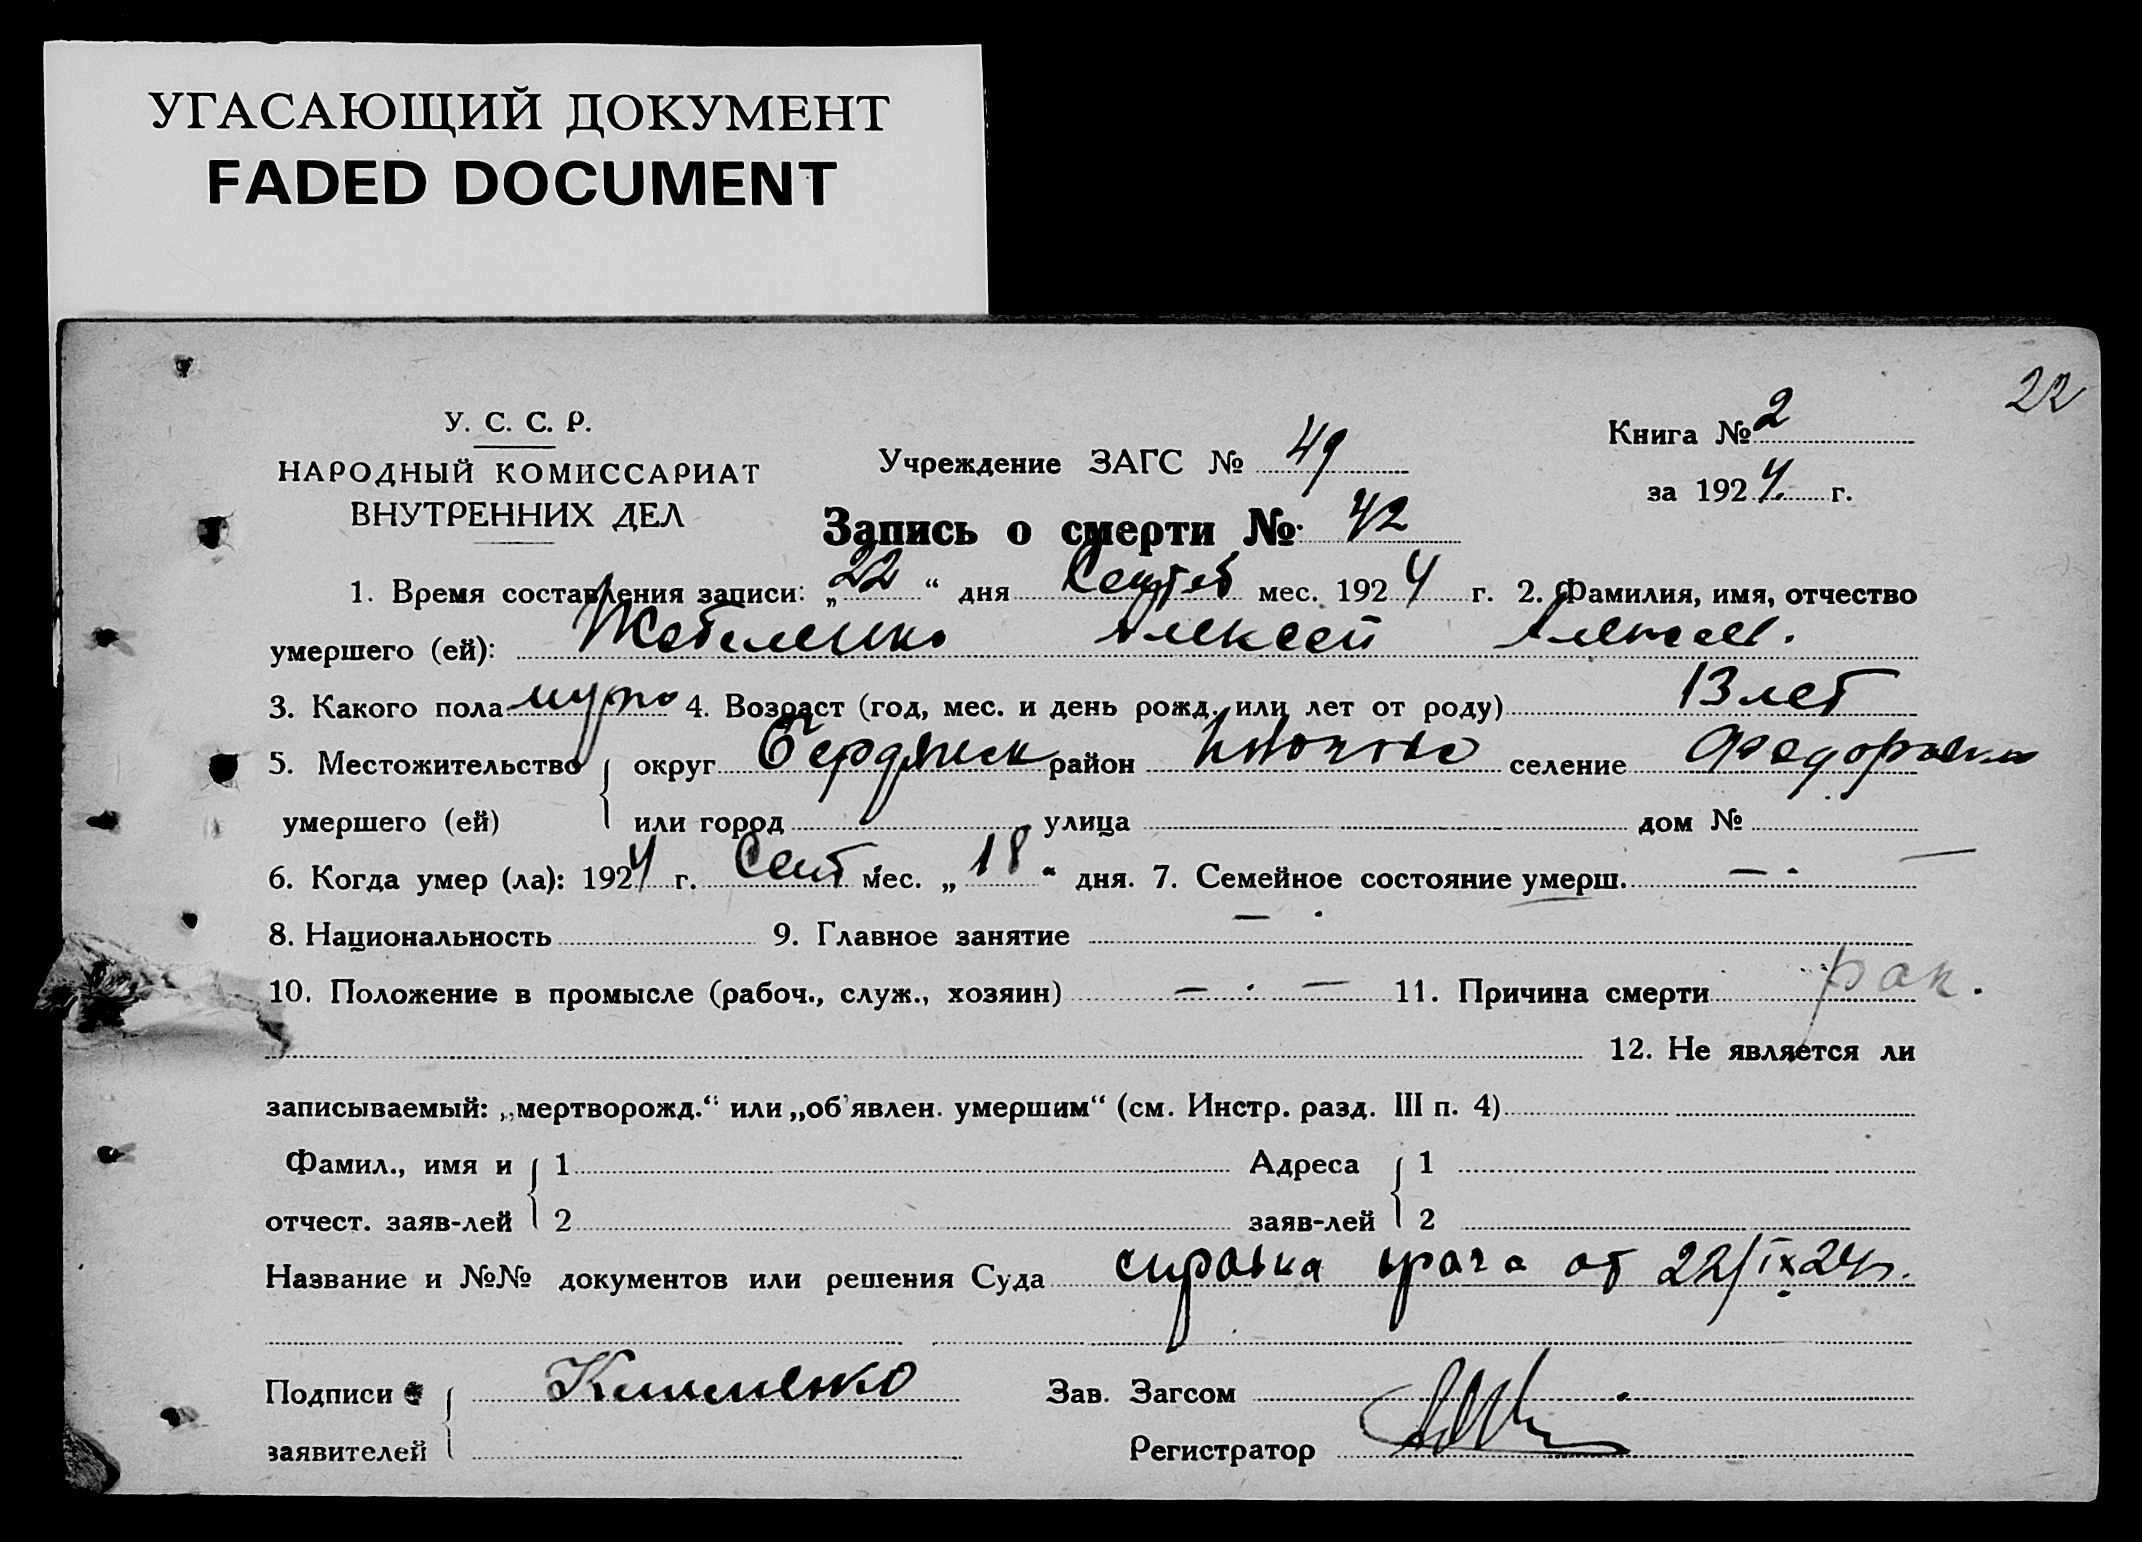 УГАСАЮЩИЙ ДОКУМЕНТ
FADED DOCUMENT
22
У. С. С. Р.
НАРОДНЫЙ КОМИССАРИАТ
ВНУТРЕННИХ ДЕЛ
Учреждение ЗАГС № 49
Книга № 2
за 1924 г.
Запись о смерти № 42
1. Время составления записи: „22“ дня Сентяб мес. 1924 г. 2. Фамилия, имя, отчество
умершего (ей): Алексей Алексеев.
3. Какого пола муж 4. Возраст (год, мес. и день рожд. или лет от роду) 13 лет
5. Местожительство { округ Бердянск район селение Федоровка
умершего (ей) или город улица дом №
6. Когда умер (ла): 1924 г. Сент мес. „18“ дня. 7. Семейное состояние умерш. — · —
8. Национальность 9. Главное занятие — ·
10. Положение в промысле (рабоч., служ., хозяин) — · — 11. Причина смерти рак.
12. Не является ли
записываемый: „мертворожд.“ или „об'явлен. умершим“ (см. Инстр. разд. III п. 4)
Фамил., имя и { 1 Адреса { 1
отчест. заяв-лей 2 заяв-лей 2
Название и №№ документов или решения Суда справка врача от 22/IX 24 г.
Подписи { Клименко Зав. Загсом
заявителей Регистратор